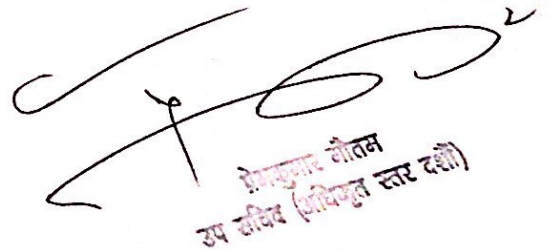 प्रेमकुमार गौतम
उप सचिव (अधिकृत स्तर दशौं)